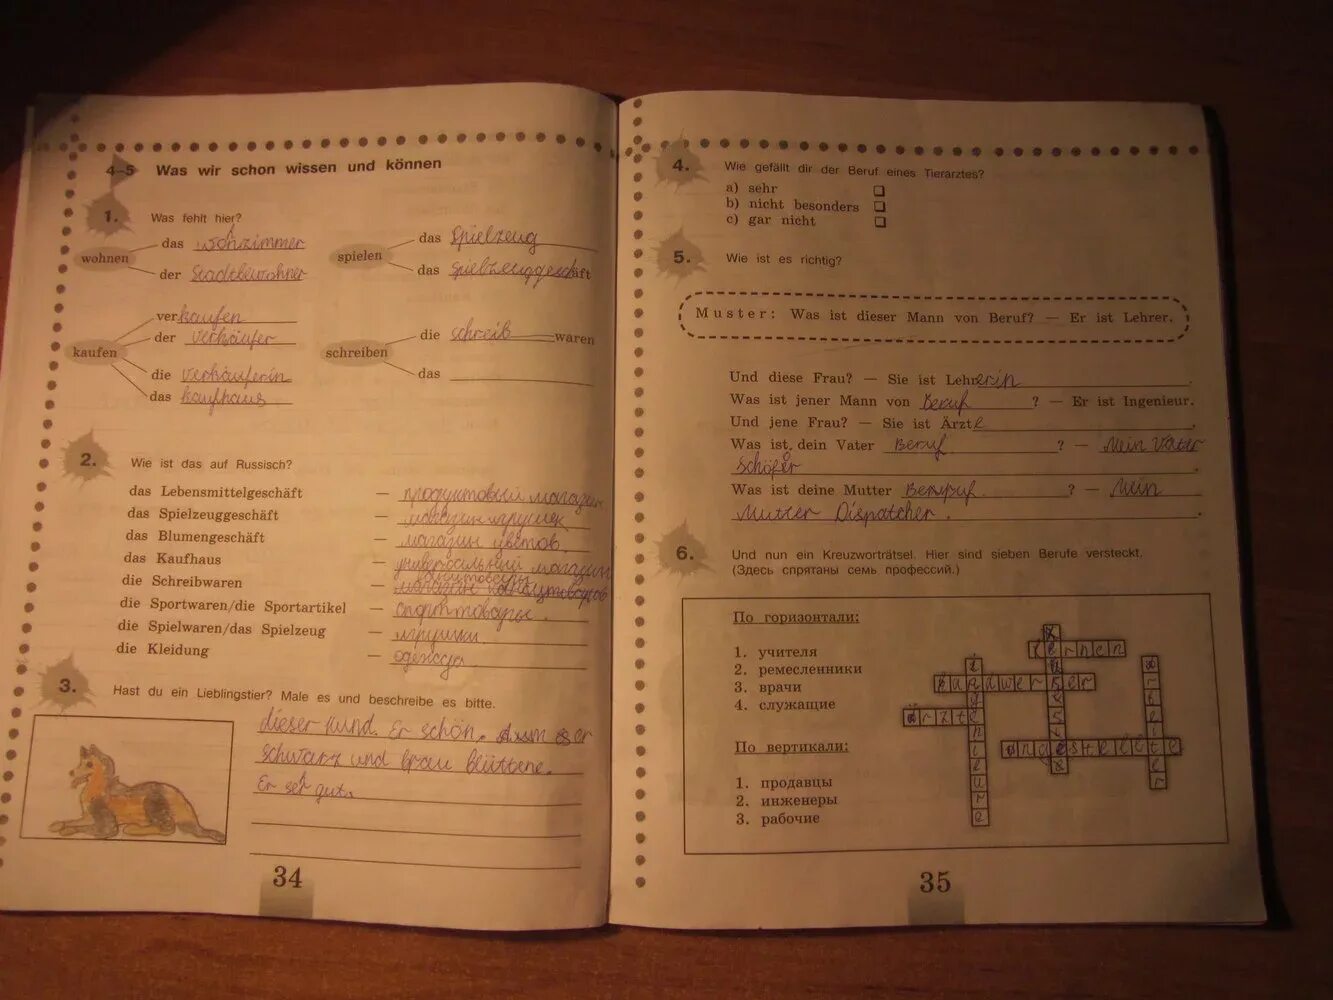 4–5 Was wir schon wissen und können
1. Was fehlt hier?
wohnen
das Wohzimmer
der Stadtbewohner
spielen
das Spielzeug
das Spielzeuggeschäft
kaufen
verkaufen
der Verkäufer
die Verkäuferin
das Kaufhaus
schreiben
die schreib waren
das
2. Wie ist das auf Russisch?
das Lebensmittelgeschäft — продуктовый магазин
das Spielzeuggeschäft — магазин игрушек
das Blumengeschäft — магазин цветов
das Kaufhaus — универсальный магазин
die Schreibwaren —
die Sportwaren/die Sportartikel — спорттовары.
die Spielwaren/das Spielzeug — игрушки
die Kleidung — одежда
3. Hast du ein Lieblingstier? Male es und beschreibe es bitte.
dieser Hund. Er schön. er
schwarz und brau
Er seh gut.
34
4. Wie gefällt dir der Beruf eines Tierarztes?
a) sehr
b) nicht besonders
c) gar nicht
5. Wie ist es richtig?
Muster: Was ist dieser Mann von Beruf? — Er ist Lehrer.
Und diese Frau? — Sie ist Lehrerin
Was ist jener Mann von Beruf ? — Er ist Ingenieur.
Und jene Frau? — Sie ist Ärzte
Was ist dein Vater Beruf ? — Mein Vater
Schöfer
Was ist deine Mutter ? — Mein
Mutter Dispatcher.
6. Und nun ein Kreuzworträtsel. Hier sind sieben Berufe versteckt.
(Здесь спрятаны семь профессий.)
По горизонтали:
1. учителя
2. ремесленники
3. врачи
4. служащие
По вертикали:
1. продавцы
2. инженеры
3. рабочие
35